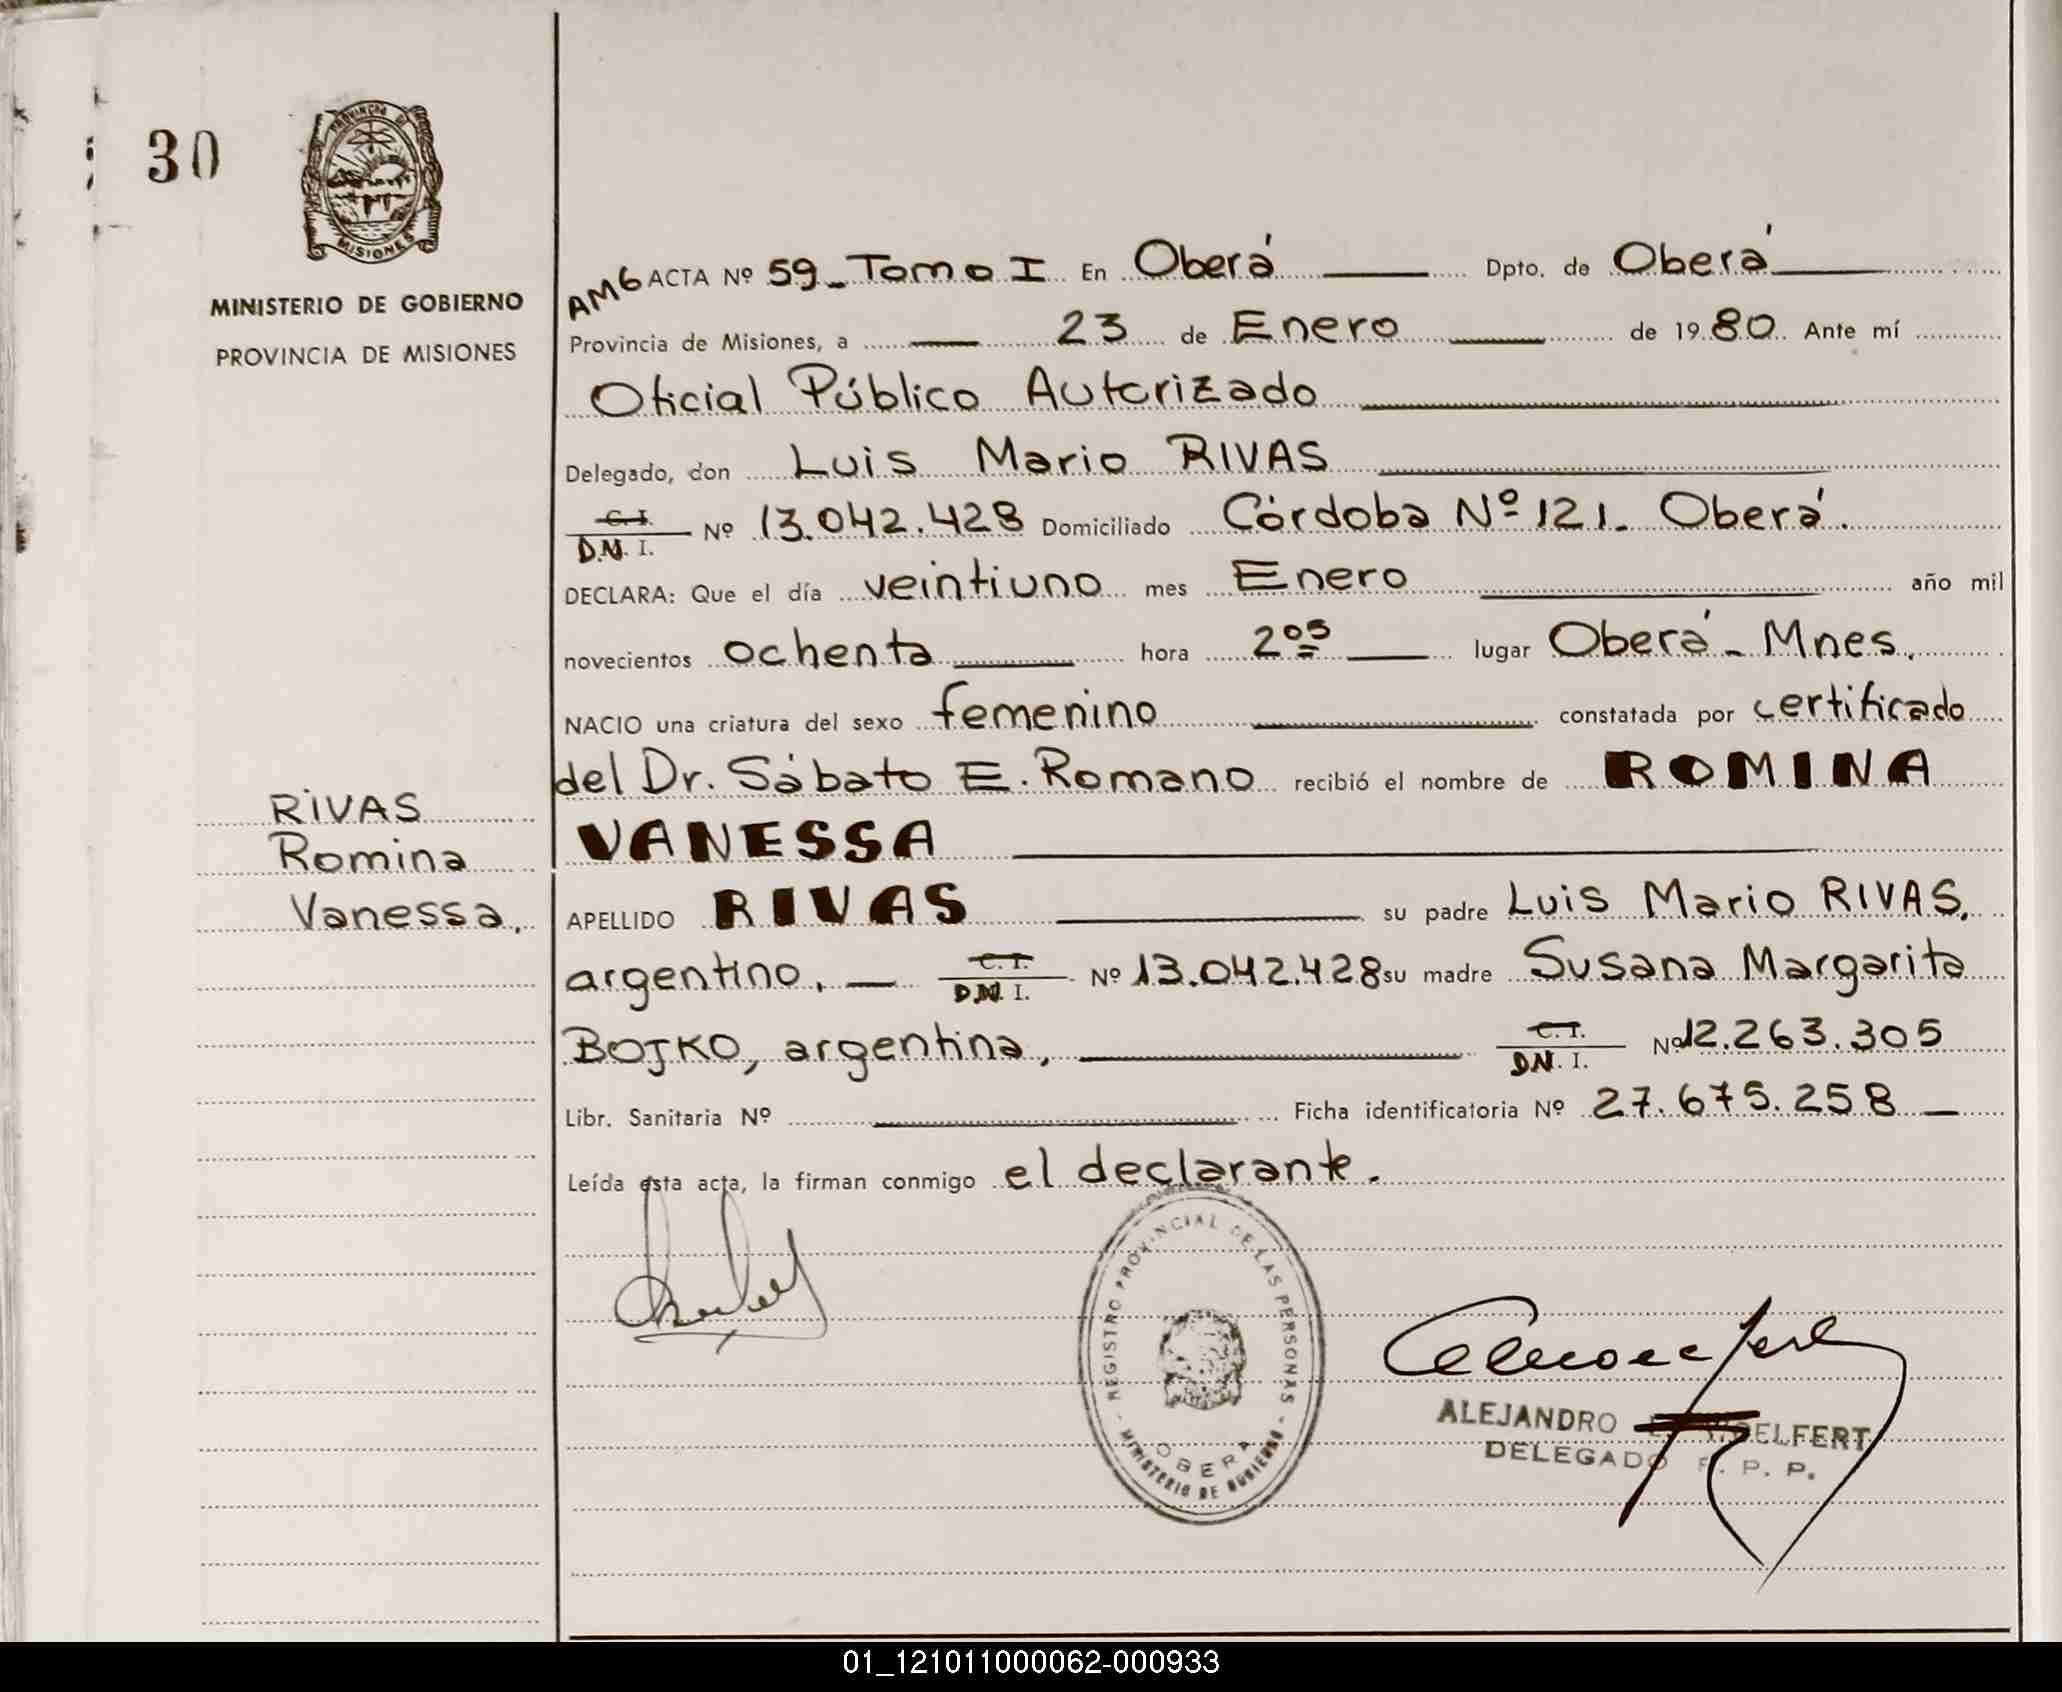 30
PROVINCIA DE
MISIONES
MINISTERIO DE GOBIERNO
PROVINCIA DE MISIONES
AMG ACTA Nº 59_ Tomo I En Oberá Dpto. de Oberá
Provincia de Misiones, a 23 de Enero de 19 80 Ante mí
Oficial Público Autorizado
Delegado, don Luis Mario RIVAS
C. I.
D.N. I. Nº 13.042.428 Domiciliado Córdoba Nº 121_ Oberá.
DECLARA: Que el día veintiuno mes Enero año mil
novecientos ochenta hora 2 05 lugar Oberá_ Mnes.
NACIO una criatura del sexo femenino constatada por certificado
del Dr. Sábato E. Romano recibió el nombre de ROMINA
VANESSA
RIVAS
Romina
Vanessa.
APELLIDO RIVAS su padre Luis Mario RIVAS,
argentino, C. I.
D.N. I. Nº 13.042.428 su madre Susana Margarita
BOJKO, argentina, C. I.
D.N. I. Nº 12.263.305
Libr. Sanitaria Nº Ficha identificatoria Nº 27.675.258_
Leída esta acta, la firman conmigo el declarante.
REGISTRO PROVINCIAL DE LAS PERSONAS
OBERA
MINISTERIO DE GOBIERNO
ALEJANDRO
DELEGADO R. P. P.
01_121011000062-000933